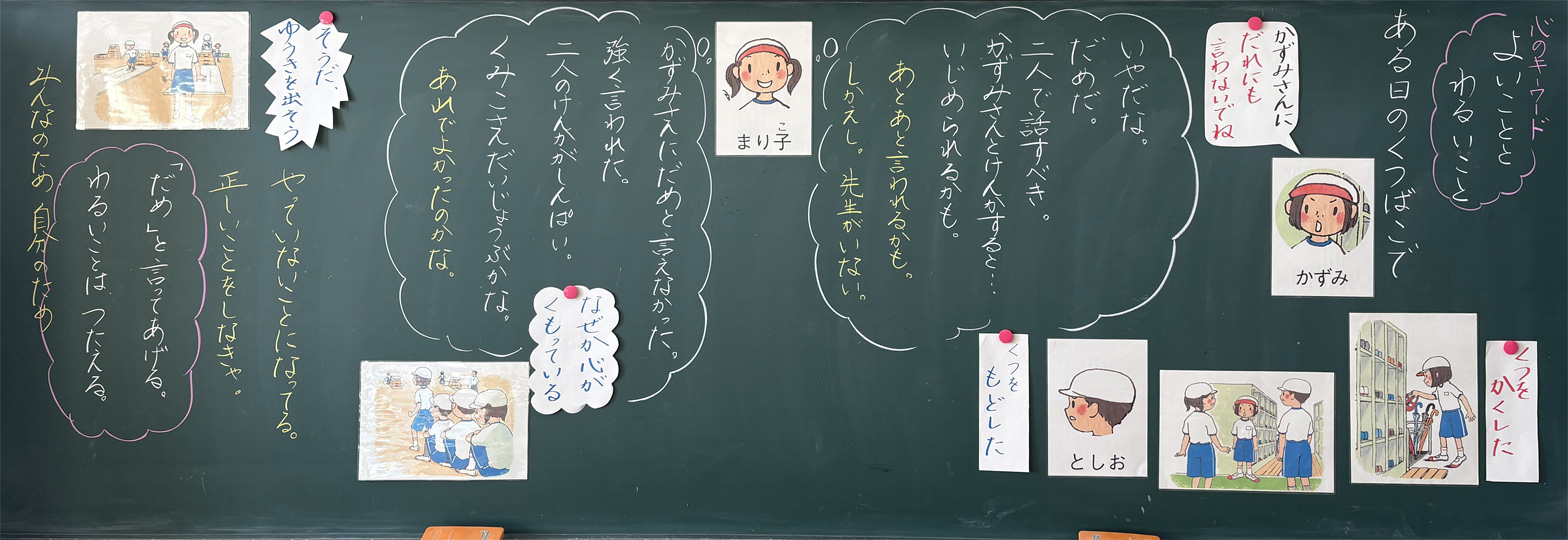 心のキーワード
よいことと
わるいこと
ある日のくつばこで
くつを
かくした
かずみさんに
だれにも
言わないでね
かずみ
としお
くつを
もどした
いやだな。
だめだ。
二人で話すべき。
かずみさんとけんかすると…
いじめられるかも。
あとあと言われるかも。
しかえし。先生がいない。
まり子
こ
かずみさんにだめと言えなかった。
強く言われた。
二人のけんかがしんぱい。
くみこさんだいじょうぶかな。
あれでよかったのかな。
なぜか心が
くもっている
そうだ、
ゆうきを出そう
やっていないことになってる。
正しいことをしなきゃ。
「だめ」と言ってあげる。
わるいことは、つたえる。
みんなのため 自分のため